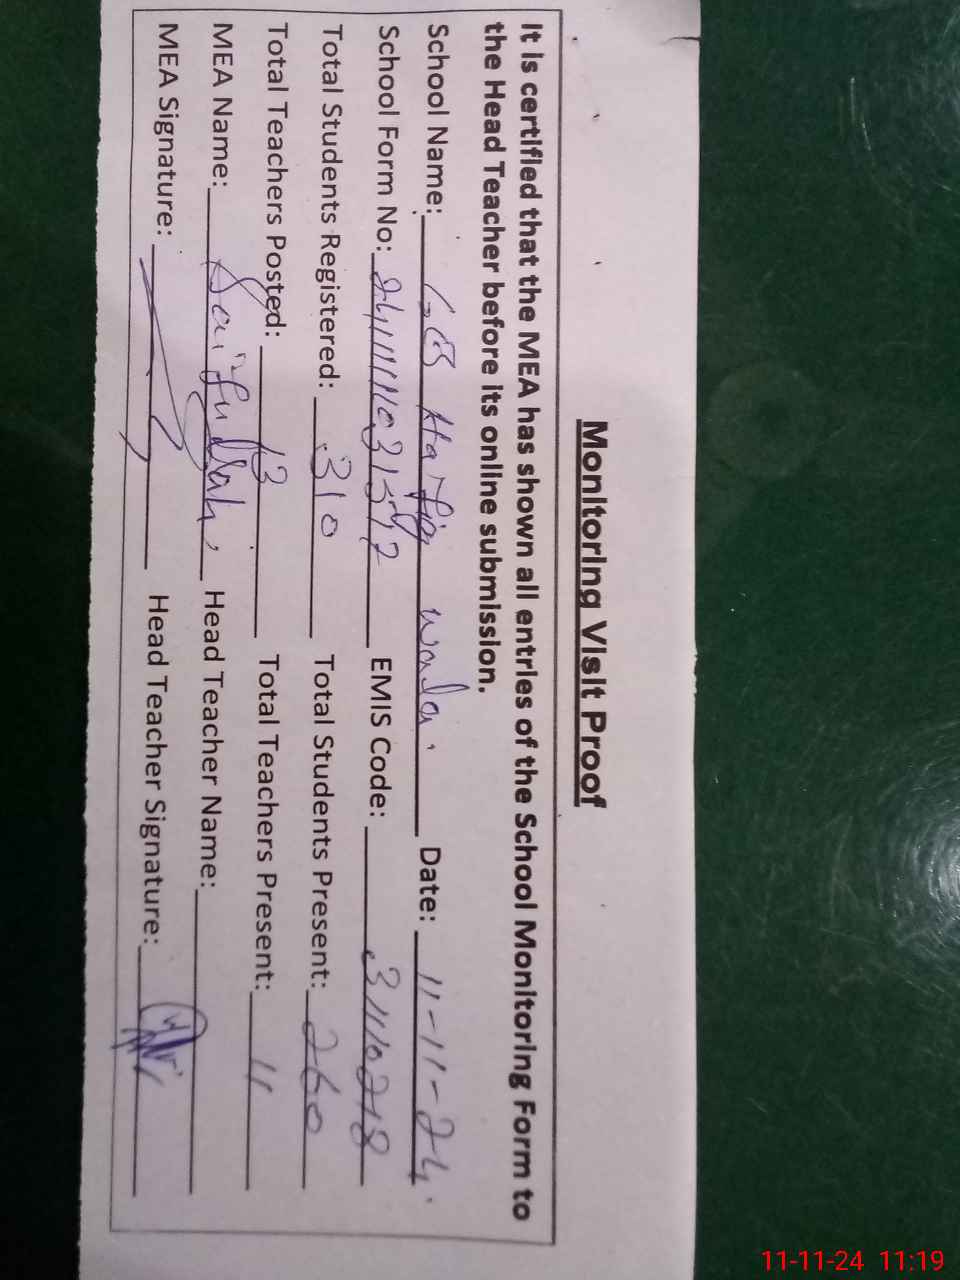 Monitoring Visit Proof
It is certified that the MEA has shown all entries of the School Monitoring Form to
the Head Teacher before its online submission.
School Name: Date: 11-11-24
School Form No: EMIS Code: 31110218
Total Students Registered: 310 Total Students Present: 260
Total Teachers Posted: 13 Total Teachers Present: 11
MEA Name: Saifullah Head Teacher Name:
MEA Signature: Head Teacher Signature:
11-11-24 11:19